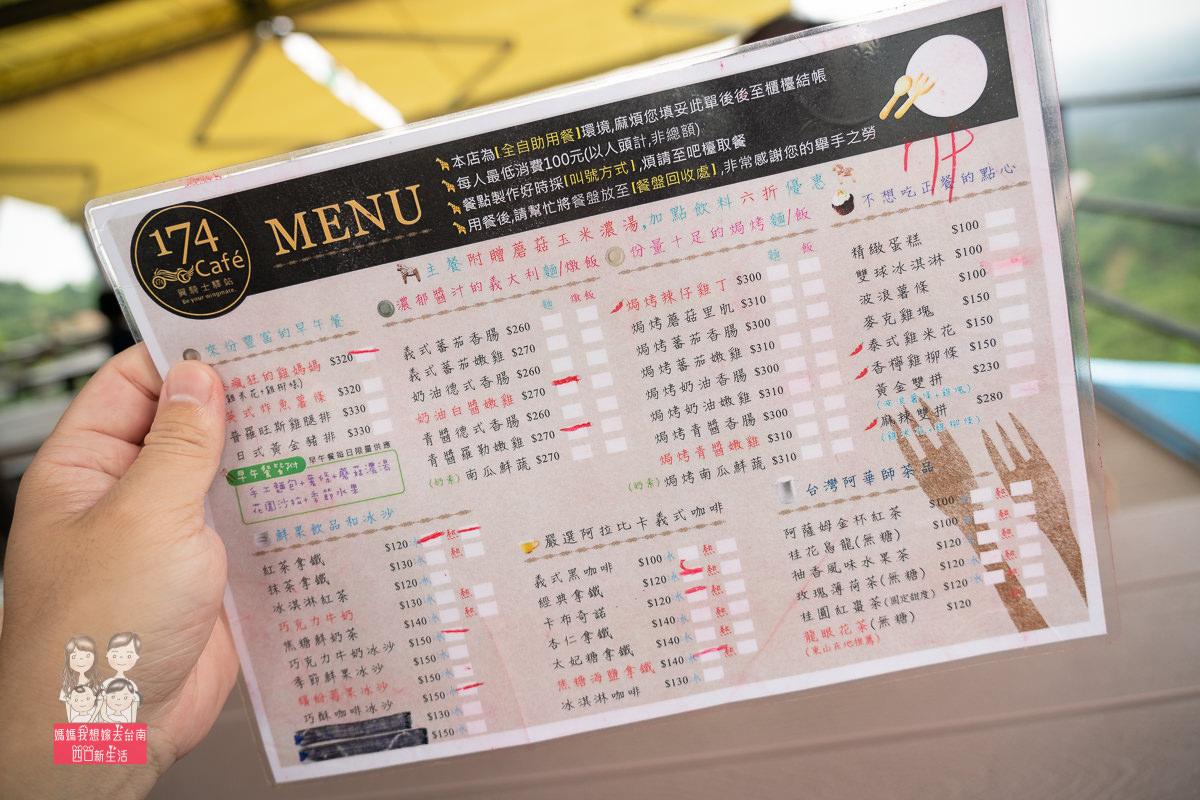 174
Café
翼騎士驛站
Be your wingmate.
MENU
本店為【全自助用餐】環境,麻煩您填妥此單後後至櫃檯結帳
每人最低消費100元(以人頭計,非總額)
餐點製作好時採【叫號方式】,煩請至吧檯取餐
用餐後,請幫忙將餐盤放至【餐盤回收處】,非常感謝您的舉手之勞
主餐附贈蘑菇玉米濃湯,加點飲料六折優惠
來份豐富的早午餐
瘋狂的雞媽媽 $320
(雞米花+雞柳條)
英式炸魚薯條 $320
普羅旺斯雞腿排 $330
日式黃金豬排 $330
早午餐每日限量供應
早午餐皆附
手工麵包+薯條+蘑菇濃湯
花園沙拉+季節水果
濃郁醬汁的義大利麵/燉飯
麵 燉飯
義式蕃茄香腸 $260
義式蕃茄嫩雞 $270
奶油德式香腸 $260
奶油白醬嫩雞 $270
青醬德式香腸 $260
青醬羅勒嫩雞 $270
(奶素) 南瓜鮮蔬 $270
份量十足的焗烤麵/飯
麵 飯
焗烤辣仔雞丁 $300
焗烤蘑菇里肌 $310
焗烤蕃茄香腸 $300
焗烤蕃茄嫩雞 $310
焗烤奶油香腸 $300
焗烤奶油嫩雞 $310
焗烤青醬香腸 $300
焗烤青醬嫩雞 $310
(奶素) 焗烤南瓜鮮蔬 $310
不想吃正餐的點心
精緻蛋糕 $100
雙球冰淇淋 $100
波浪薯條 $100
麥克雞塊 $150
泰式雞米花 $150
香檸雞柳條 $150
黃金雙拼 $230
麻辣雙拼 $280
(雞米花+雞柳條)
鮮果飲品和冰沙
紅茶拿鐵 $120 冰 熱
抹茶拿鐵 $130 冰 熱
冰淇淋紅茶 $120 冰
巧克力牛奶 $130 冰 熱
焦糖鮮奶茶 $140 冰 熱
巧克力牛奶冰沙 $150 冰
季節鮮果冰沙 $150 冰
繽紛莓果冰沙 $150 冰
巧酥咖啡冰沙 $150 冰
$130 冰
$150 冰
嚴選阿拉比卡義式咖啡
義式黑咖啡 $100 冰 熱
經典拿鐵 $120 冰 熱
卡布奇諾 $120 冰 熱
杏仁拿鐵 $140 冰 熱
太妃糖拿鐵 $140 冰 熱
焦糖海鹽拿鐵 $140 冰 熱
冰淇淋咖啡 $130 冰
台灣阿華師茶品
阿薩姆金杯紅茶 $100 冰 熱
桂花烏龍(無糖) $100 冰 熱
柚香風味水果茶 $120 冰 熱
玫瑰薄荷茶(無糖) $120 冰 熱
桂圓紅棗茶(固定甜度) $120 熱
龍眼花茶(無糖) $120
(東山在地推薦)
媽媽我想嫁去台南
四口新生活